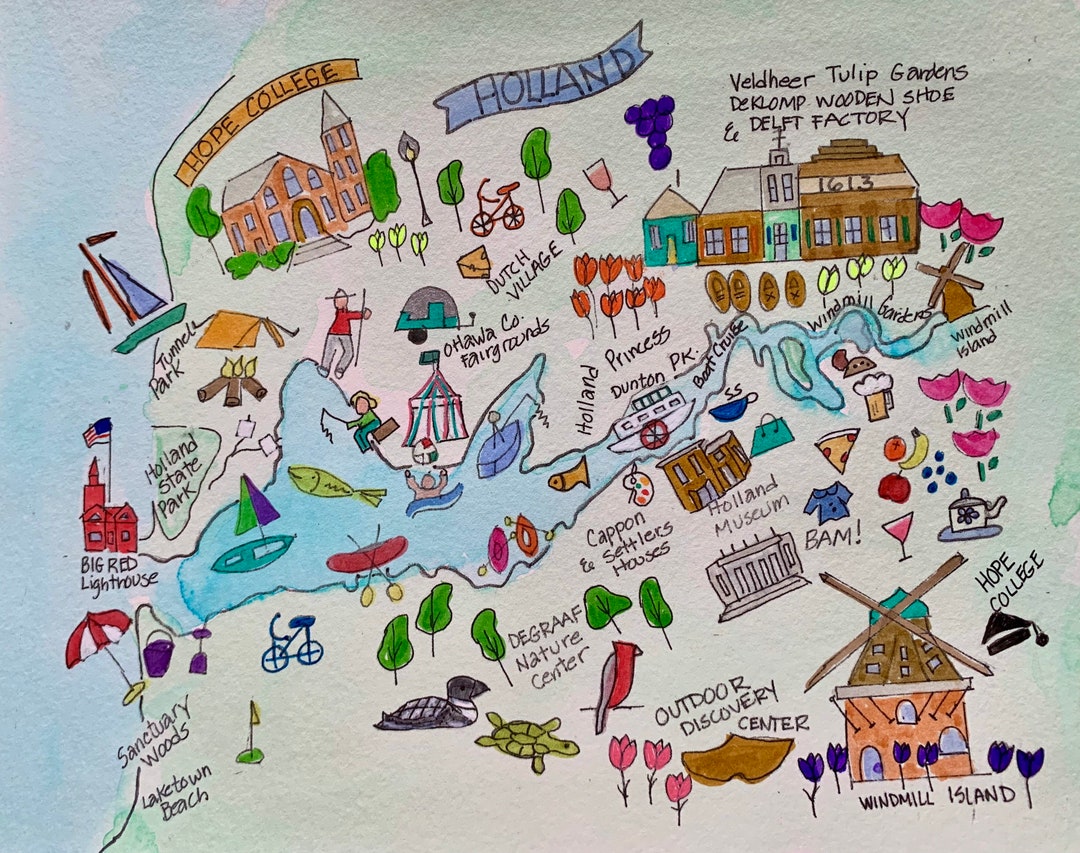 HOPE COLLEGE
HOLLAND
Veldheer Tulip Gardens
DeKlomp Wooden Shoe
& Delft Factory
1613
DUTCH
VILLAGE
Tunnel
Park
Ottawa Co.
Fairgrounds
Holland
Princess
Dunton Pk.
Boat Cruise
Windmill Gardens
Windmill
Island
Holland
State
Park
BIG RED
Lighthouse
Cappon
& Settlers
Houses
Holland
Museum
BAM!
HOPE
COLLEGE
DEGRAAF
Nature
Center
Sanctuary
Woods
Laketown
Beach
OUTDOOR
DISCOVERY
CENTER
WINDMILL ISLAND